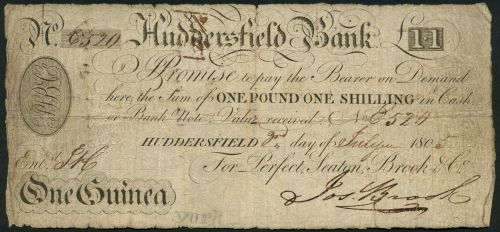 No. 6320 Huddersfield Bank £1 1
I Promise to pay the Bearer on Demand
here, the Sum of ONE POUND ONE SHILLING in Cash
or Bank Note, Value received No. 6524
HUDDERSFIELD 3rd day of July 1805
Ent.d For Perfect, Seaton, Brook & Co.
One Guinea Jos. Brook